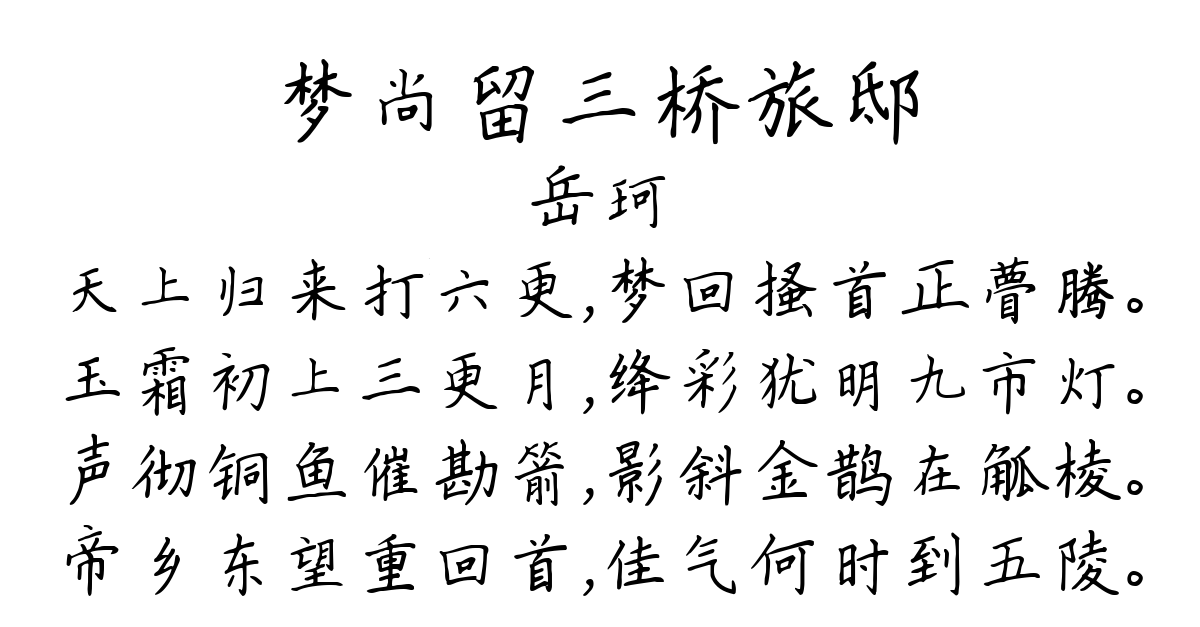 梦尚留三桥旅邸
岳珂
天上归来打六更,梦回搔首正瞢腾。
玉霜初上三更月,绛彩犹明九市灯。
声彻铜鱼催勘箭,影斜金鹊在觚棱。
帝乡东望重回首,佳气何时到五陵。